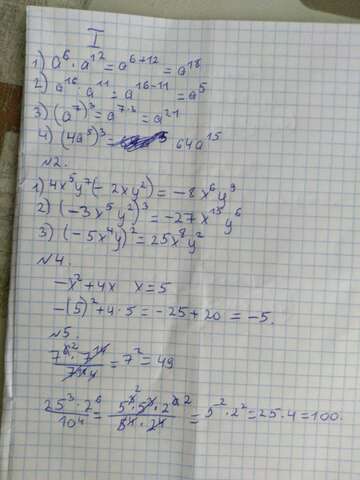 I
1) a⁶ · a¹² = a⁶⁺¹² = a¹⁸
2) a¹⁶ : a¹¹ = a¹⁶⁻¹¹ = a⁵
3) (a⁷)³ = a⁷·³ = a²¹
4) (4a⁵)³ = 64a¹⁵
№2.
1) 4x⁵y⁷(-2xy²) = -8x⁶y⁹
2) (-3x⁵y²)³ = -27x¹⁵y⁶
3) (-5x⁴y)² = 25x⁸y²
№4.
-x²+4x x=5
-(5)²+4·5 = -25+20 = -5.
№5.
= 7² = 49
25³·2⁶ / 10⁴ = = 5²·2² = 25·4 = 100.